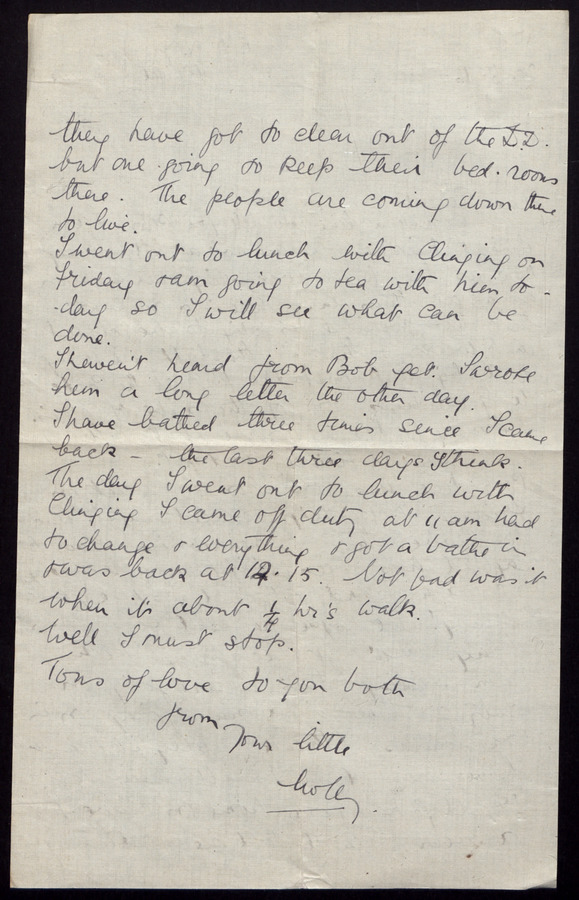 they have got to clear out of the D.D.
but are going to keep their bed-rooms
there. The people are coming down there
to live.
I went out to lunch with Clinging on
Friday & am going to tea with him to-
-day so I will see what can be
done.
I haven't heard from Bob yet. I wrote
him a long letter the other day.
I have bathed three times since I came
back - the last three days I think.
The day I went out to lunch with
Clinging I came off duty at 11 am had
to change & everything & got a bathe in
& was back at 12.15. Not bad was it
when it's about ¼ hr's walk.
Well I must stop.
Tons of love to you both
from
Your little